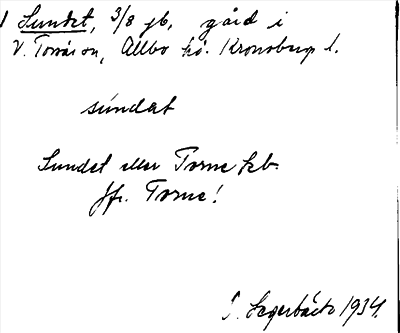 1 Sundet, 3/8 jb, gård i
V. Torsås sn, Allbo hd. Kronobergs l.
súndat
Sundet eller Torne kb.
Jfr. Torne!
J. Lagerbäck 1934.